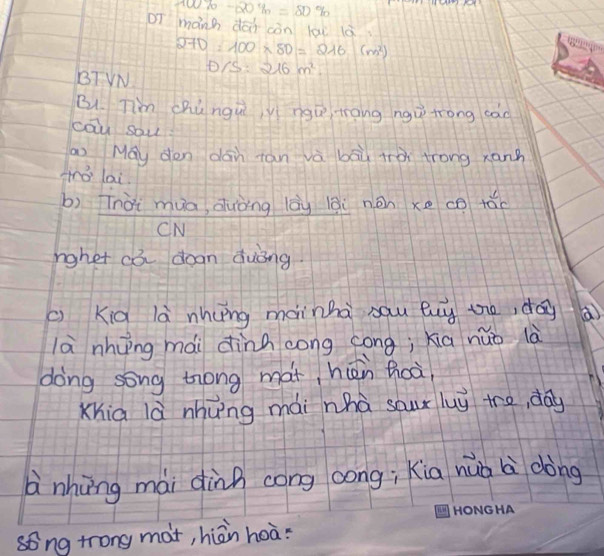 100% - 20% = 80%
DT mảnh đất còn lại là
270 : 100 x 80 = 216 (m²)
Đ/S: 216 m².
BTVN
B1. Tìm chủ ngữ, vị ngữ, trạng ngữ trong các
câu sau:
a) Mây đen dần tan và bầu trời trong xanh
trở lại.
b) Trời mưa, đường lầy lội nên xe cộ tắc
CN
nghẹt cả đoạn đường.
c) Kia là những mái nhà sau luỹ tre, đây a)
là những mái đình cong cong; kia nữa là
dòng sông trong mát, hiền hoà,
Khia là những mái nhà sau luỹ tre, đây
là những mái đình cong cong; Kia nữa là dòng
HONG HA
sông trong mát, hiền hoà: